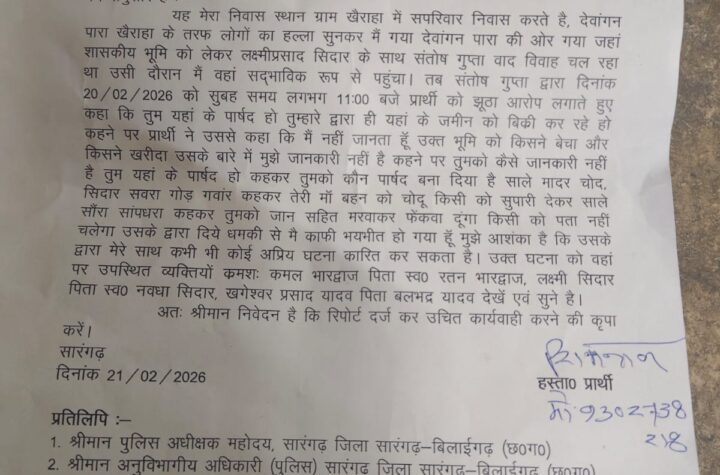 यह मेरा निवास स्थान ग्राम खैराहा में सपरिवार निवास करते है, देवांगन
पारा खैराहा के तरफ लोगों का हल्ला सुनकर मैं गया देवांगन पारा की ओर गया जहां
शासकीय भूमि को लेकर लक्ष्मीप्रसाद सिदार के साथ संतोष गुप्ता वाद विवाद चल रहा
था उसी दौरान मैं वहां सद्भाविक रूप से पहुंचा। तब संतोष गुप्ता द्वारा दिनांक
20/02/2026 को सुबह समय लगभग 11:00 बजे प्रार्थी को झूठा आरोप लगाते हुए
कहा कि तुम यहां के पार्षद हो तुम्हारे द्वारा ही यहां के जमीन को बिक्री कर रहे हो
कहने पर प्रार्थी ने उससे कहा कि मैं नहीं जानता हूँ उक्त भूमि को किसने बेचा और
किसने खरीदा उसके बारे में मुझे जानकारी नहीं है कहने पर तुमको कैसे जानकारी नहीं
है तुम यहां के पार्षद हो कहकर तुमको कौन पार्षद बना दिया है साले मादर चोद,
सिदार सवरा गोड़ गवांर कहकर तेरी माँ बहन को चोदू किसी को सुपारी देकर साले
सौंरा सांपधरा कहकर तुमको जान सहित मरवाकर फेंकवा दूंगा किसी को पता नहीं
चलेगा उसके द्वारा दिये धमकी से मै काफी भयभीत हो गया हूँ मुझे आशंका है कि उसके
द्वारा मेरे साथ कभी भी कोई अप्रिय घटना कारित कर सकता है। उक्त घटना को वहां
पर उपस्थित व्यक्तियों क्रमशः कमल भारद्वाज पिता स्व0 रतन भारद्वाज, लक्ष्मी सिदार
पिता स्व0 नवधा सिदार, खगेश्वर प्रसाद यादव पिता बलभद्र यादव देखें एवं सुने है।
अतः श्रीमान निवेदन है कि रिपोर्ट दर्ज कर उचित कार्यवाही करने की कृपा
करें।
सारंगढ़
दिनांक 21/02/2026
हस्ता0 प्रार्थी
मो. 9302738
218
प्रतिलिपि :–
1. श्रीमान पुलिस अधीक्षक महोदय, सारंगढ़ जिला सारंगढ़–बिलाईगढ़ (छ0ग0)
2. श्रीमान अनुविभागीय अधिकारी (पुलिस) सारंगढ़ जिला सारंगढ़–बिलाईगढ़ (छ0ग0)